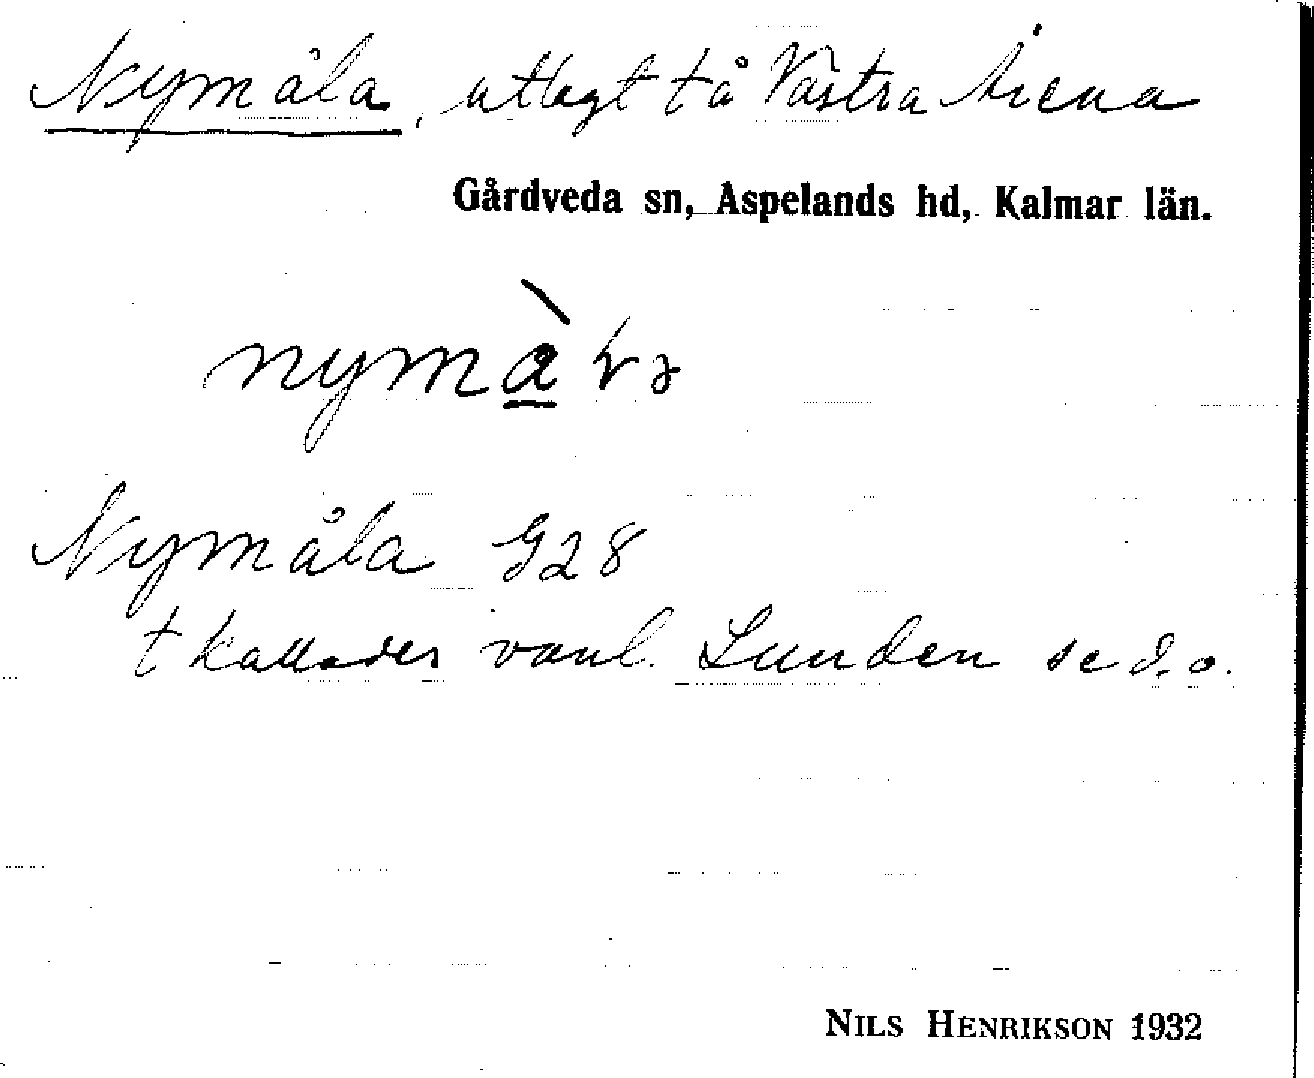 Nymåla, utlagt tå Västra Årena
Gårdveda sn, Aspelands hd, Kalmar län.
nymàlva
Nymåla G28
t kallades vanl. Lunden se d.o.
NILS HENRIKSON 1932